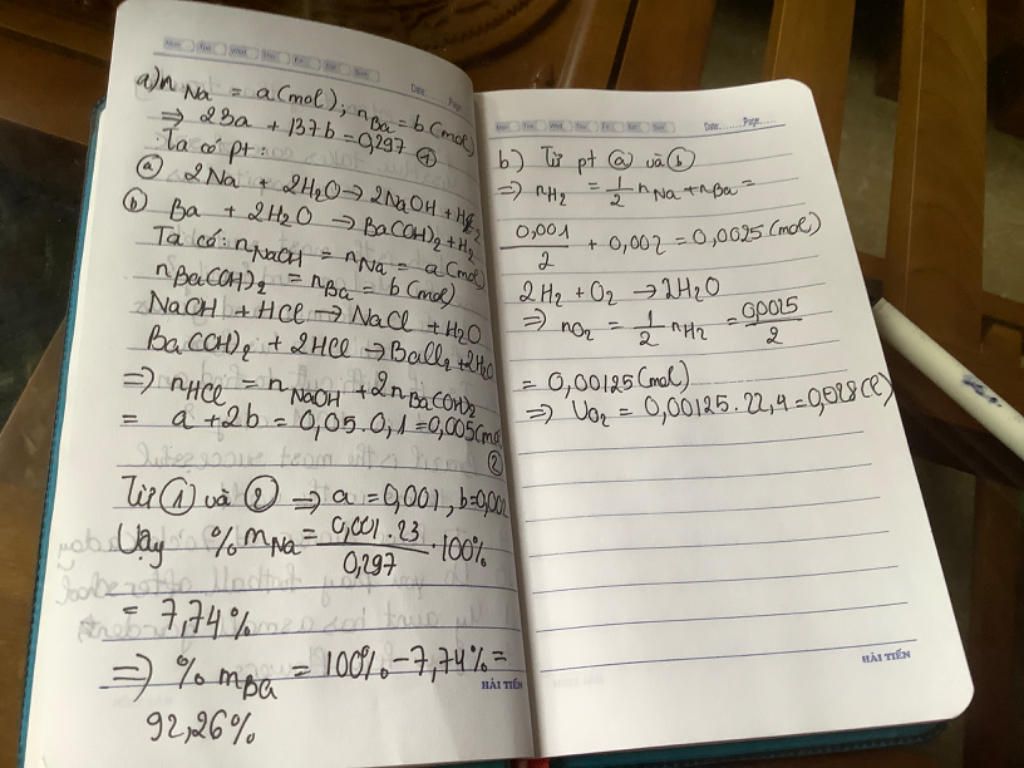 a) n Na = a (mol); nBa = b (mol)
⇒ 23a + 137b = 0,297 ①
Ta có pt:
ⓐ 2Na + 2H2O → 2NaOH + H2
ⓑ Ba + 2H2O → Ba(OH)2 + H2
Ta có: nNaOH = nNa = a (mol)
nBa(OH)2 = nBa = b (mol)
NaOH + HCl → NaCl + H2O
Ba(OH)2 + 2HCl → BaCl2 + 2H2O
⇒ nHCl = nNaOH + 2nBa(OH)2
= a + 2b = 0,05.0,1 = 0,005 (mol)
②
Từ ① và ② ⇒ a = 0,001, b = 0,002
Vậy % mNa = 0,001.23 / 0,297 . 100%
= 7,74%
⇒ % mBa = 100% - 7,74% =
92,26%
HẢI TIẾN
Date:.......Page:.....
b) Từ pt ⓐ và ⓑ
⇒ nH2 = 1/2 nNa + nBa =
0,001 / 2 + 0,002 = 0,0025 (mol)
2H2 + O2 → 2H2O
⇒ nO2 = 1/2 nH2 = 0,0025 / 2
= 0,00125 (mol)
⇒ VO2 = 0,00125.22,4 = 0,028 (l)
HẢI TIẾN